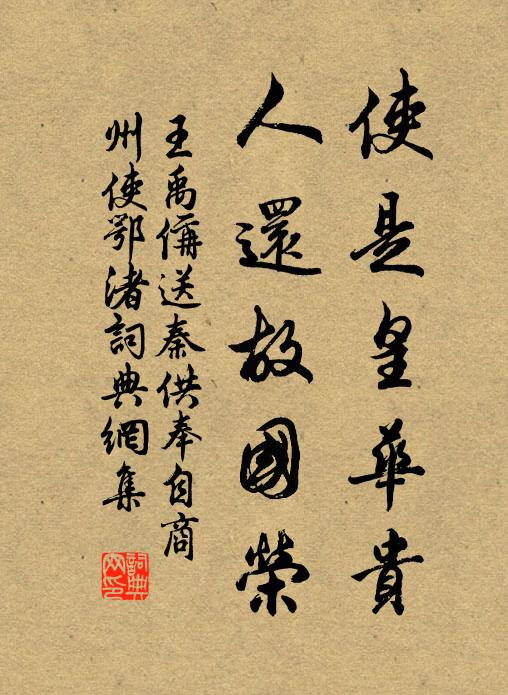 使是皇華貴
人還故國榮
王禹偁送秦供奉自商
州使鄂渚詞典網集
詞典
网印